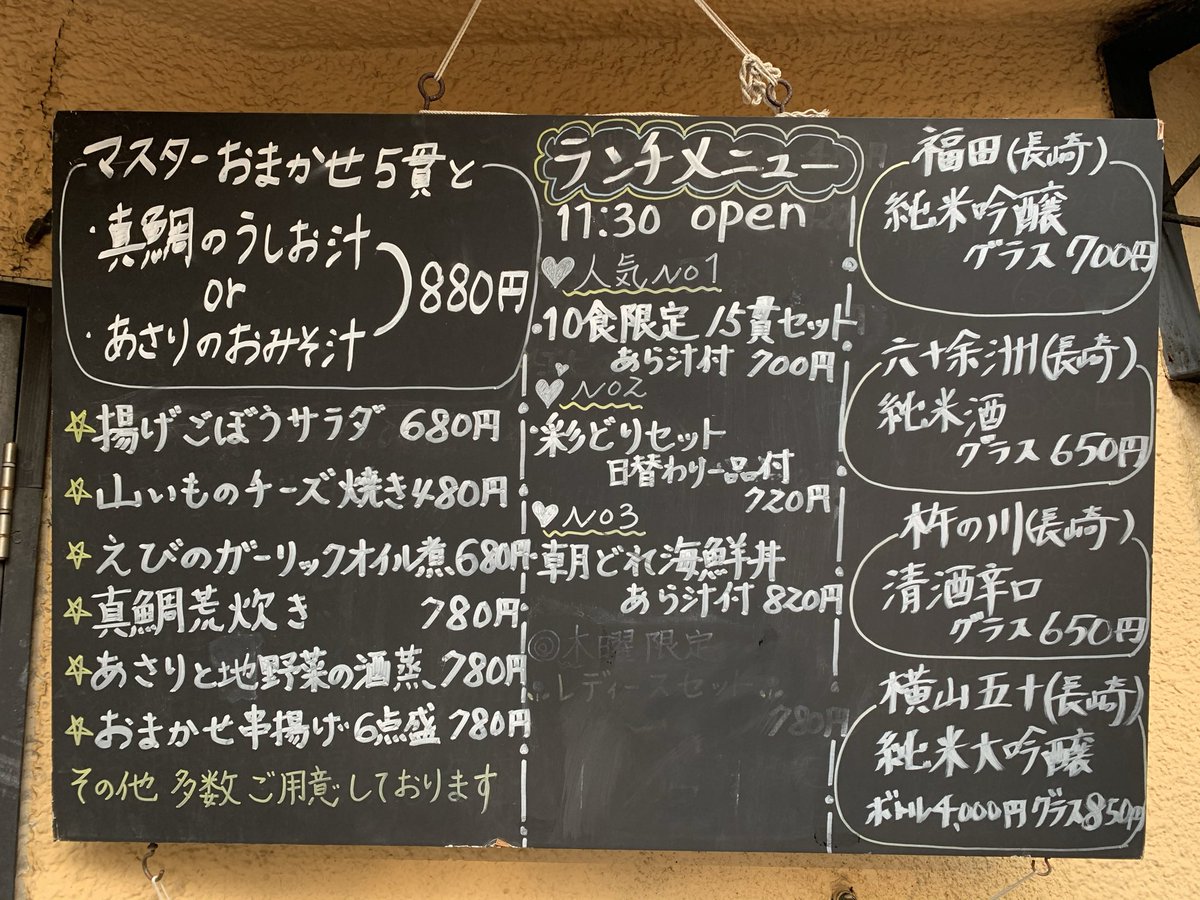 マスターおまかせ5貫と
・真鯛のうしお汁
or
・あさりのおみそ汁
880円
☆揚げごぼうサラダ 680円
☆山いものチーズ焼き480円
☆えびのガーリックオイル煮680円
☆真鯛荒炊き 780円
☆あさりと地野菜の酒蒸 780円
☆おまかせ串揚げ6点盛 780円
その他 多数ご用意しております
ランチメニュー
11:30 open
♥人気No1
・10食限定 15貫セット
あら汁付 700円
♥No2
・彩どりセット
日替わり一品付
720円
♥No3
・朝どれ海鮮丼
あら汁付 820円
@木曜限定
レディースセット
780円
福田(長崎)
純米吟醸
グラス 700円
六十余洲(長崎)
純米酒
グラス 650円
杵の川(長崎)
清酒辛口
グラス 650円
横山五十(長崎)
純米大吟醸
ボトル4,000円 グラス850円